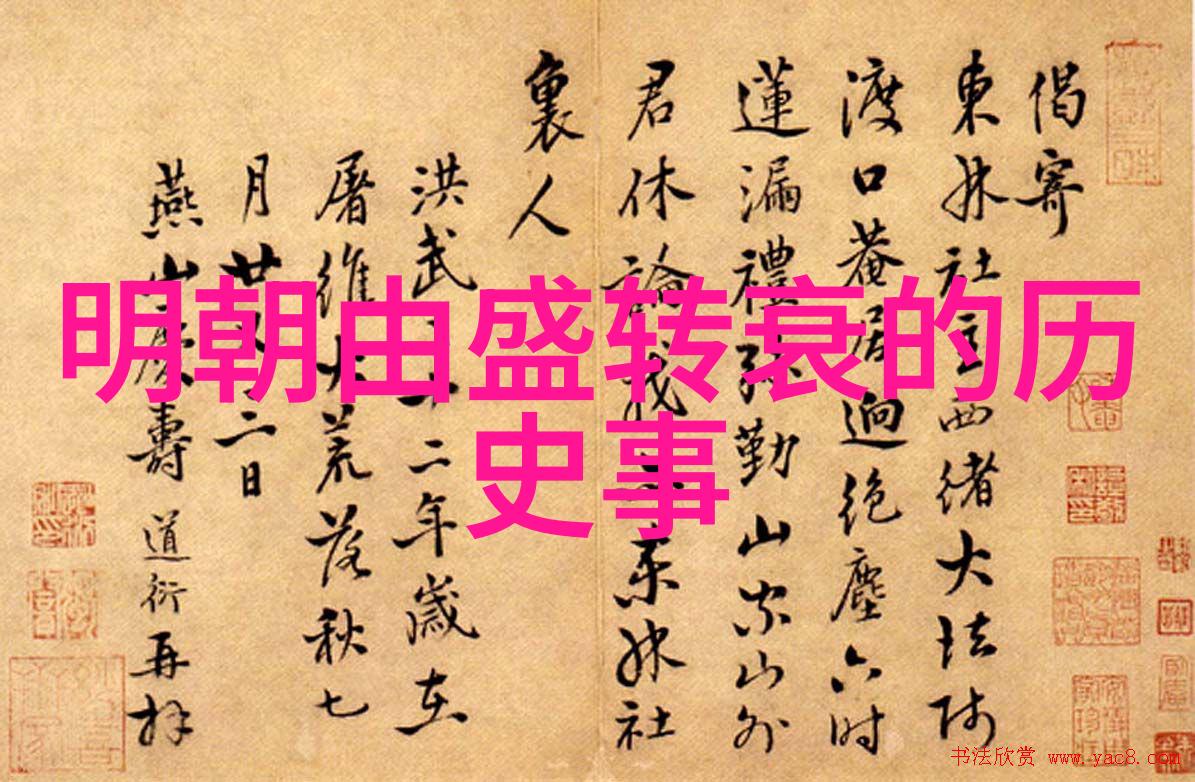 明朝由盛转衰的历
史事
偈寄
東林社主西緒大法師
渡口菴居迥絕塵六時
蓮漏禮彌勤山家山外
君休論我是東林社
裏人
洪武二十二年歲在
屠維大荒落秋七
月廿二日
燕山慶壽道衍再拜
书法欣赏 www.yac8.com